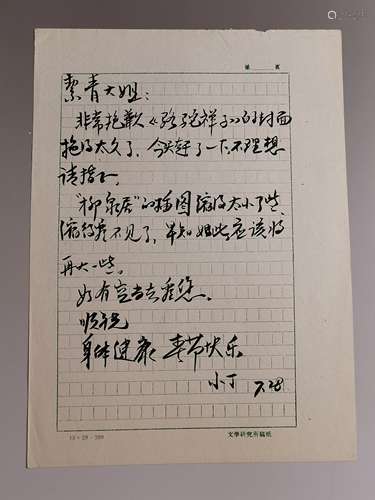 第　页
絜青大姐：
非常抱歉《骆驼祥子》的封面
拖得太久了，今天好了一下不理想
请指正。
"柳泉居"的插图缩得太小了些，
缩得看不见了，早知如此应该将
再大一些。
如有空当去看您。
顺祝
身体健康 春节快乐
小丁 2.28
15×20=300
文學研究所稿紙